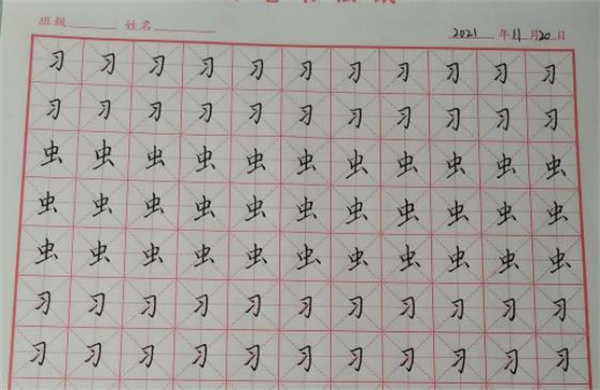 班级 姓名 2021年11月20日
习 习 习 习 习 习 习 习 习 习 习
习 习 习 习 习 习 习 习 习 习 习
虫 虫 虫 虫 虫 虫 虫 虫 虫 虫 虫
虫 虫 虫 虫 虫 虫 虫 虫 虫 虫 虫
虫 虫 虫 虫 虫 虫 虫 虫 虫 虫 虫
习 习 习 习 习 习 习 习 习 习 习
习 习 习 习 习 习 习 习 习 习 习